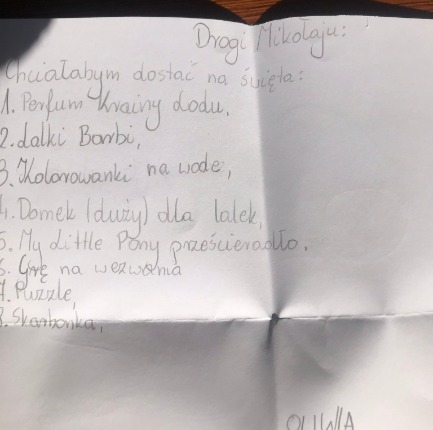 Drogi Mikołaju:
Chciałabym dostać na święta:
1. Perfum Krainy Lodu,
2. Lalki Barbi,
3. Kolorowanki na wode,
4. Domek (duży) dla lalek,
5. My Little Pony prześcieradło.
6. Grę na wezwania
7. Puzzle,
8. Skarbonka,
OLIWIA